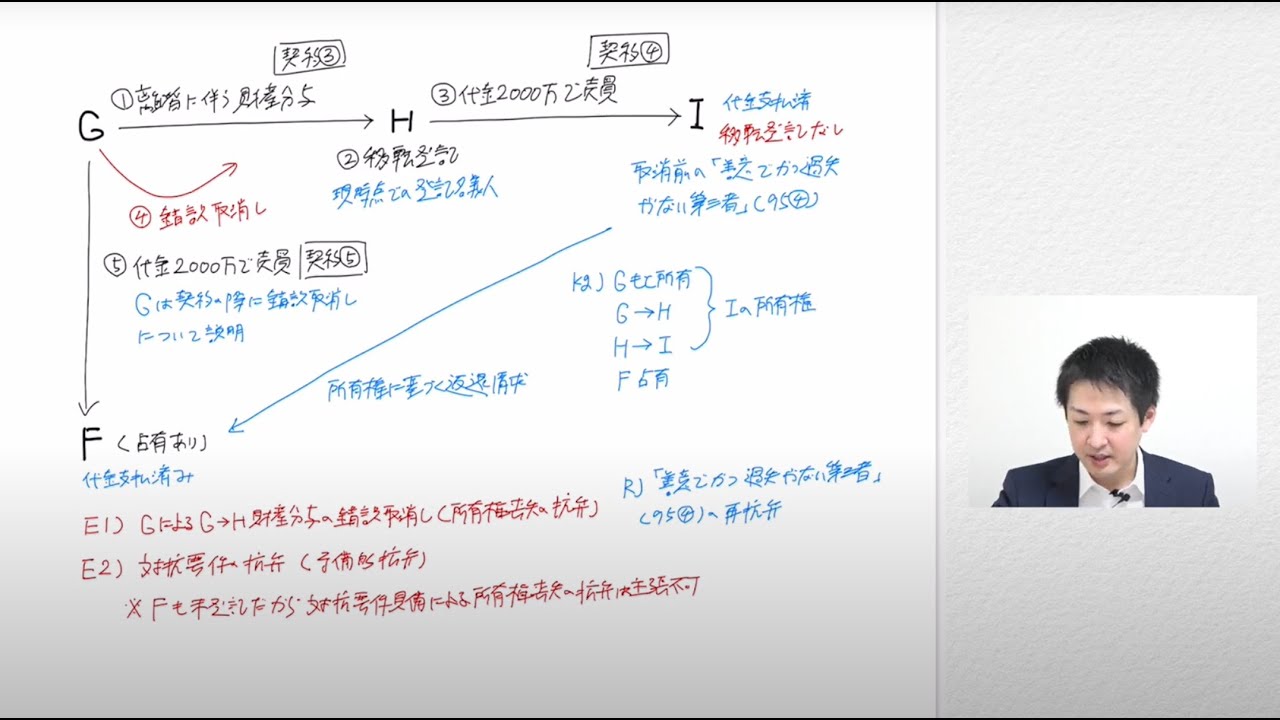 契約③
契約④
①離婚に伴う財産分与
③代金2000万で売買
G
H
I
代金支払済
移転登記なし
②移転登記
現時点での登記名義人
取消前の「善意でかつ過失
がない第三者」(95④)
④錯誤取消し
⑤代金2000万で売買
契約⑤
Gは契約の際に錯誤取消し
について説明
Kg) Gもと所有
G→H
H→I
Iの所有権
F占有
所有権に基づく返還請求
F(占有あり)
代金支払済み
E1) GによるG→H財産分与の錯誤取消し(所有権喪失の抗弁)
R)「善意でかつ過失がない第三者」
(95④)の再抗弁
E2) 対抗要件の抗弁(予備的抗弁)
※Fも未登記だから対抗要件具備による所有権喪失の抗弁は主張不可